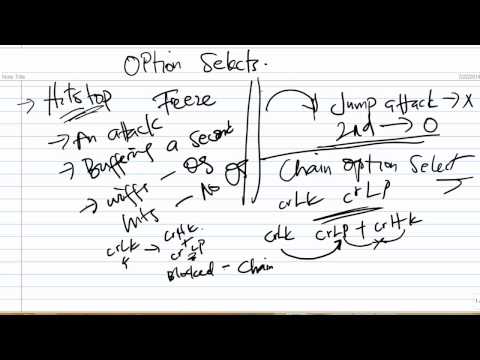 Note Title
7/22/2014
Option Selects.
→ Hitstop Freeze
→ An attack
→ Buffering a second
→ whiffs - OS
hits - No OS
crLk → crHk
+
crLP
Blocked - Chain
Jump attack → X
2nd → O
Chain Option Select
crLk crLP
crLk crLP + crHk